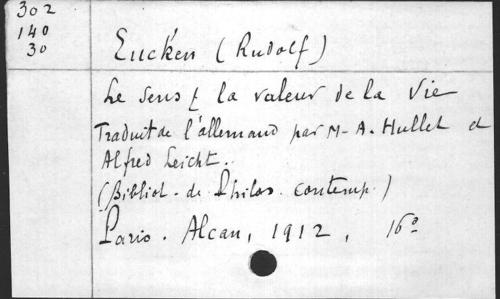 302
140
30
Eucken (Rudolf)
Le sens & la valeur de la Vie
Traduit de l'allemand par M-A. Hullet et
Alfred Leicht.
(Bibliot. de Philos. contemp.)
Paris. Alcan, 1912, 16º